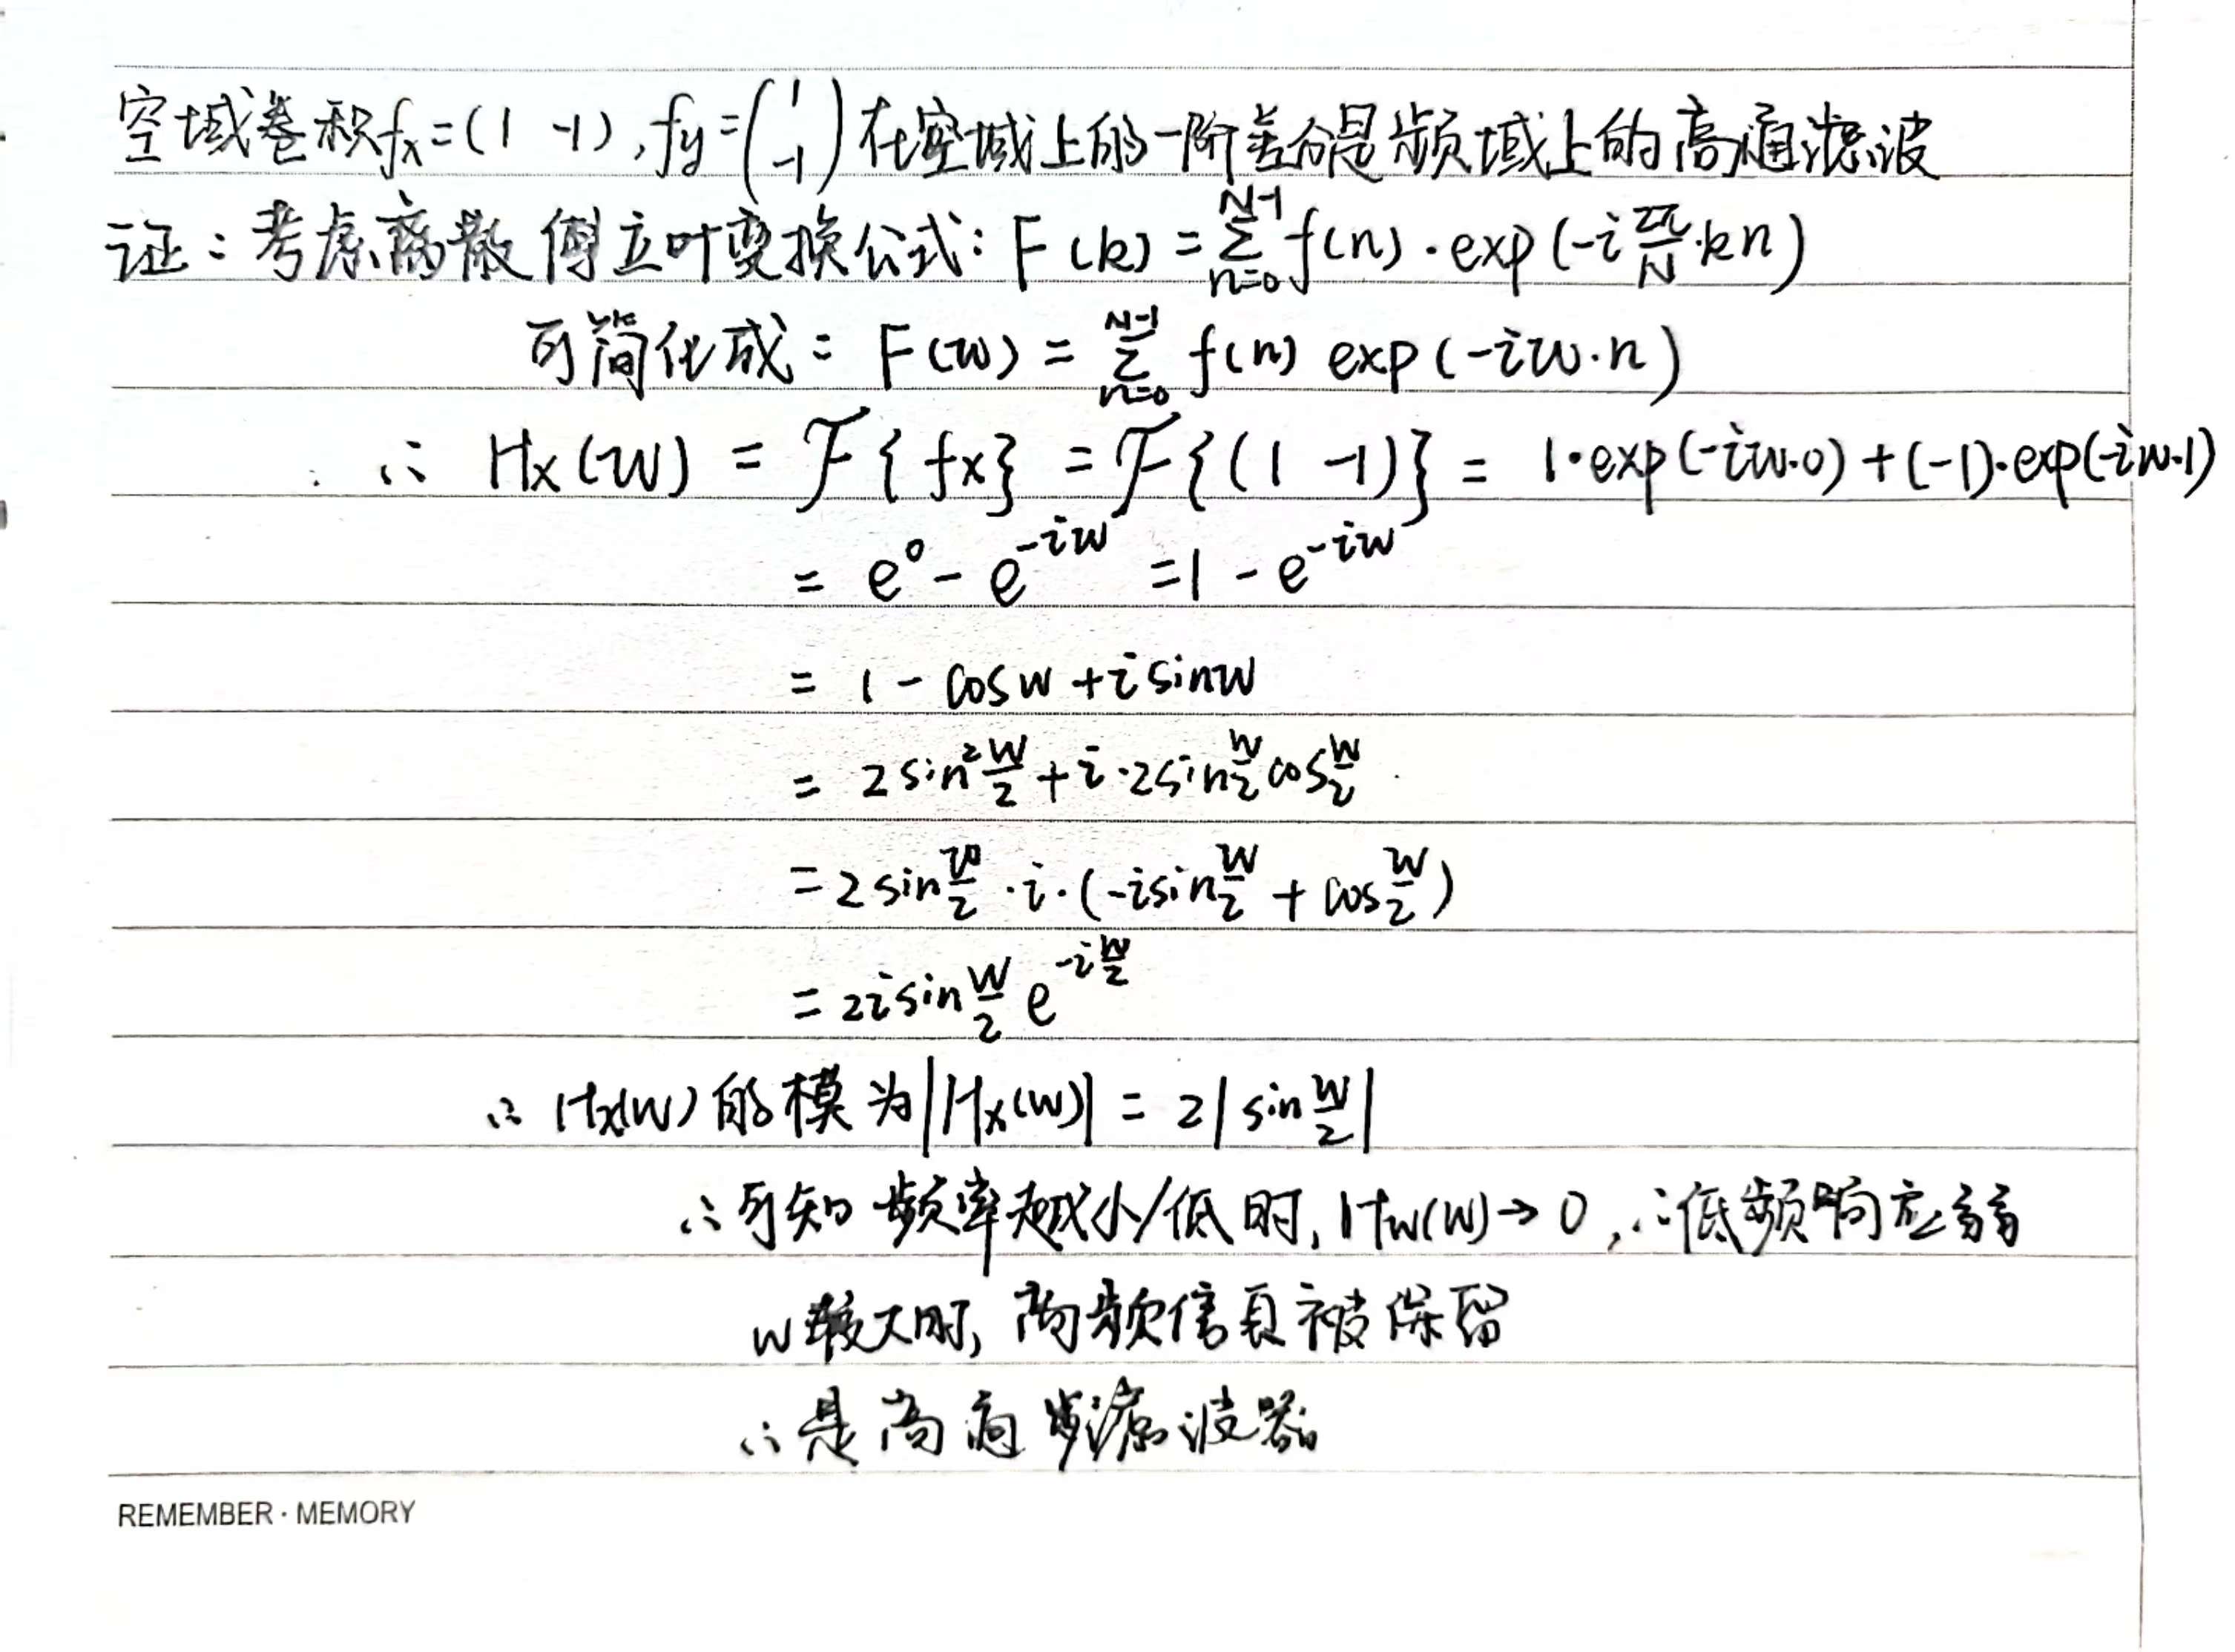 空域卷积fx=(1 -1),fy=(1 -1)在空域上的一阶差分是频域上的高通滤波
证:考虑离散傅立叶变换公式:F(k)=∑_{n=0}^{N-1}f(n)·exp(-i 2π/N·kn)
可简化成:F(w)=∑_{n=0}^{N-1} f(n) exp(-iw·n)
∴ Hx(w) = F{fx} = F{(1 -1)} = 1·exp(-iw·0)+(-1)·exp(-iw·1)
= e^0 - e^{-iw} = 1 - e^{-iw}
= 1 - cosw + isinw
= 2sin²w/2 + i·2sinw/2cosw/2
= 2sinw/2·i·(-isinw/2 + cosw/2)
= 2isinw/2 e^{-iw/2}
∴ Hx(w)的模为|Hx(w)| = 2|sinw/2|
∴可知频率越小/低时,Hw(w)→0,∴低频响应弱
w较大时,高频信息被保留
∴是高通滤波器
REMEMBER · MEMORY